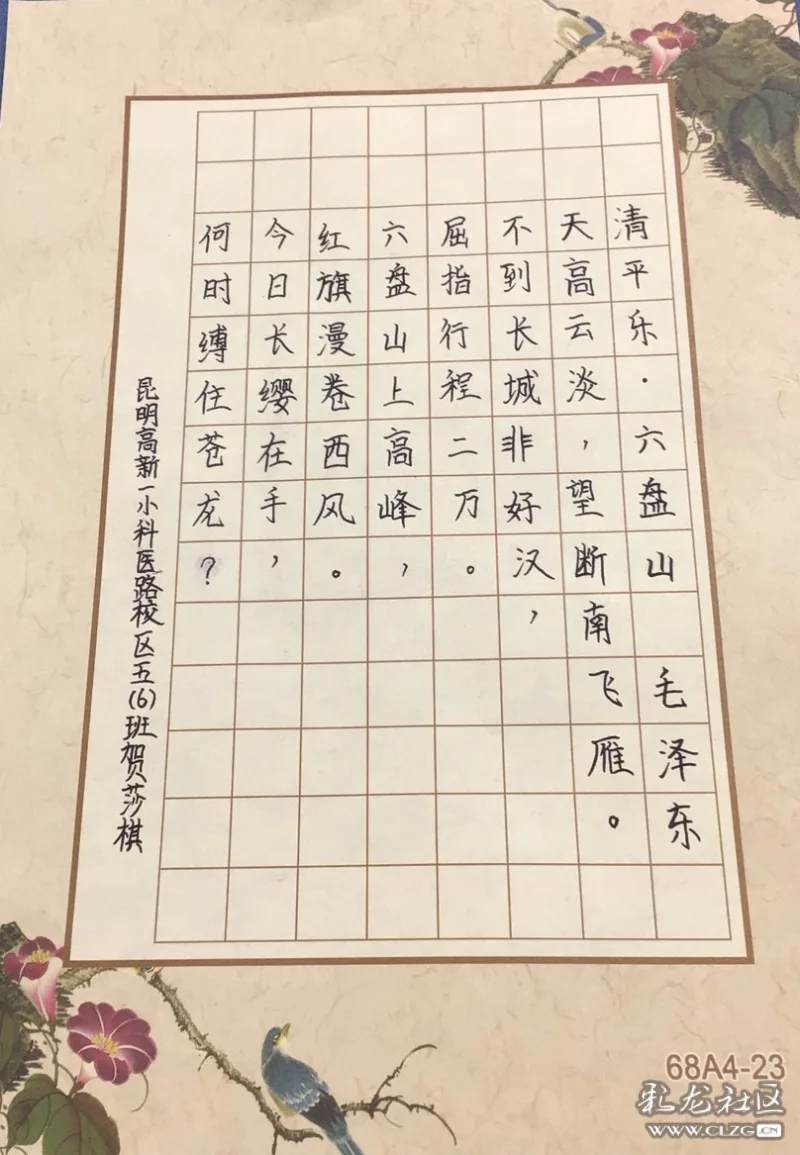 清平乐·六盘山 毛泽东
天高云淡,望断南飞雁。
不到长城非好汉,
屈指行程二万。
六盘山上高峰,
红旗漫卷西风。
今日长缨在手,
何时缚住苍龙?
昆明高新一小科医路校区五(6)班贺莎棋
68A4-23
彩龙社区
WWW.CLZG.CN